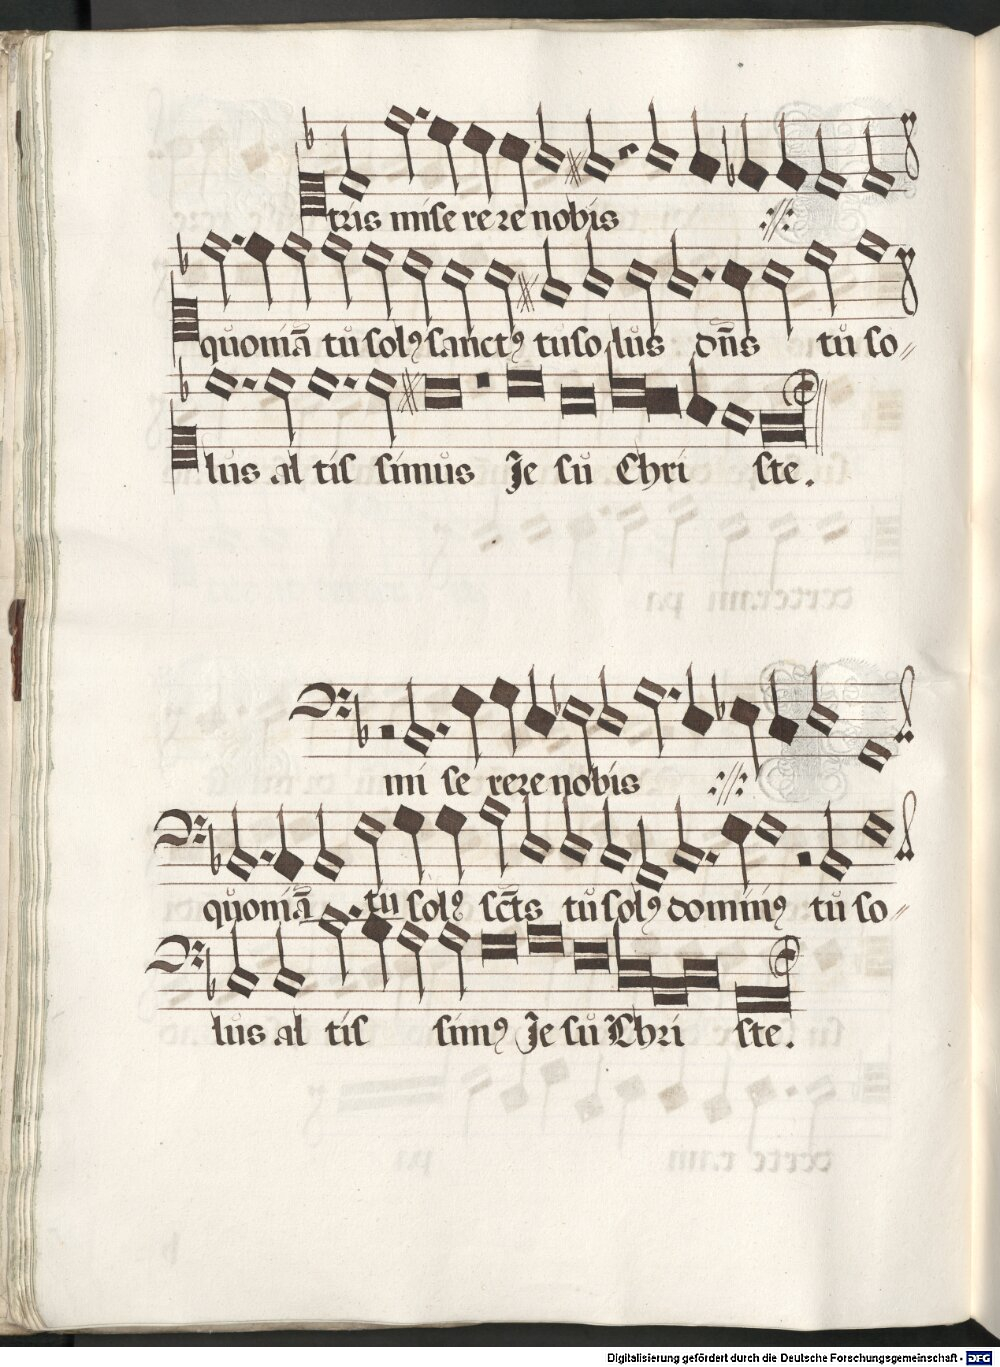 tris mise re re nobis
quoniā tu solꝰ sanctꝰ tu so lus dn̄s tu so
lus al tis simus Je su Chri ste.
mi se rere nobis
quoniā tu solꝰ sc̄ts tu solꝰ dominꝰ tu so
lus al tis simꝰ Je su Chri ste.
Digitalisierung gefördert durch die Deutsche Forschungsgemeinschaft - DFG